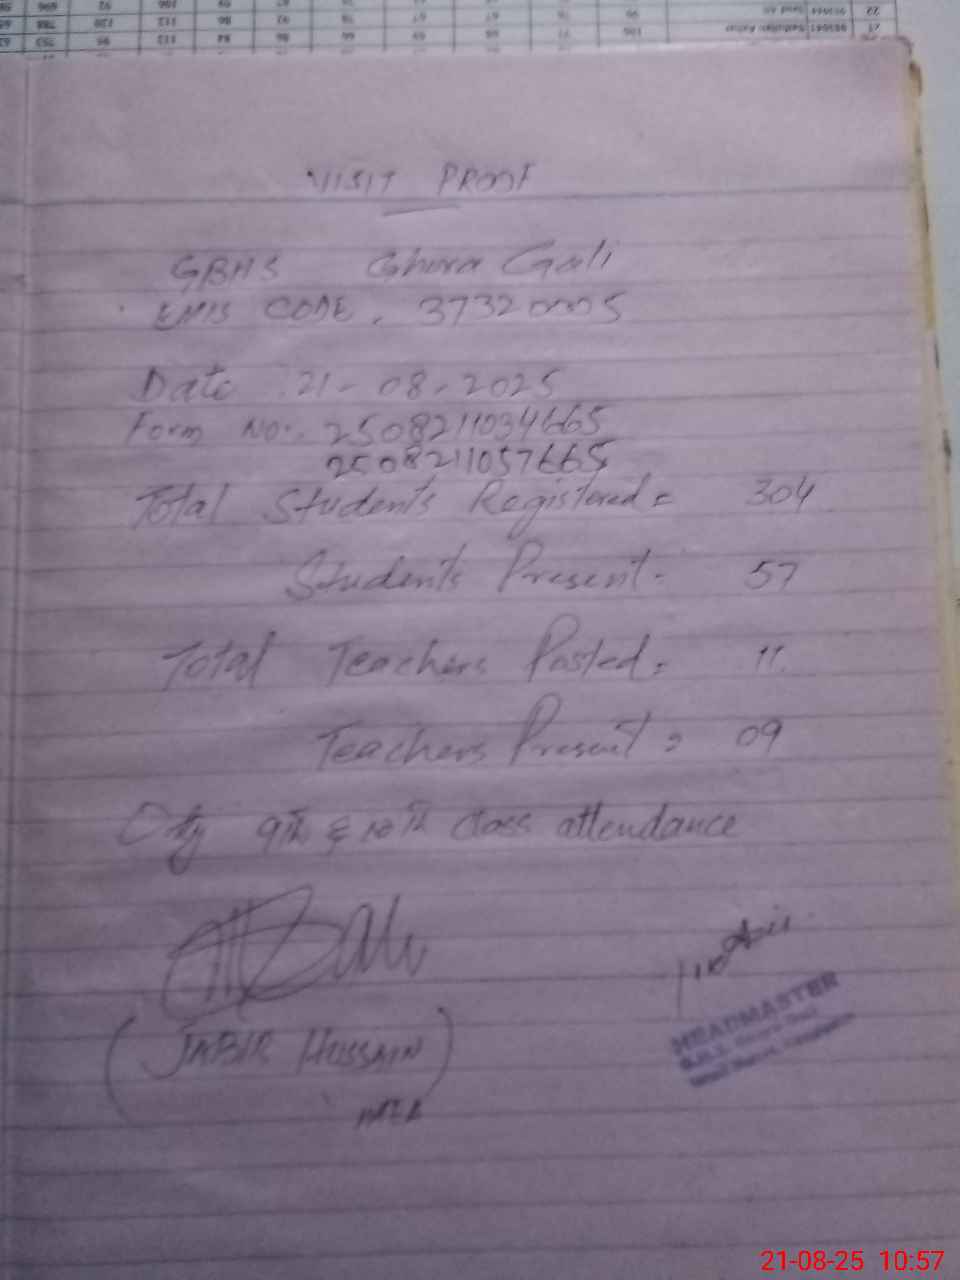 VISIT PROOF
GBHS Ghora Gali
EMIS CODE. 37320005
Date :21-08-2025
Form No:. 2508211034665
2508211057665
Total Students Registered = 304
Students Present - 57
Total Teachers Posted = 11
Teachers Present = 09
Only 9th & 10th class attendance
(JABIR HUSSAIN)
HEADMASTER
21-08-25 10:57